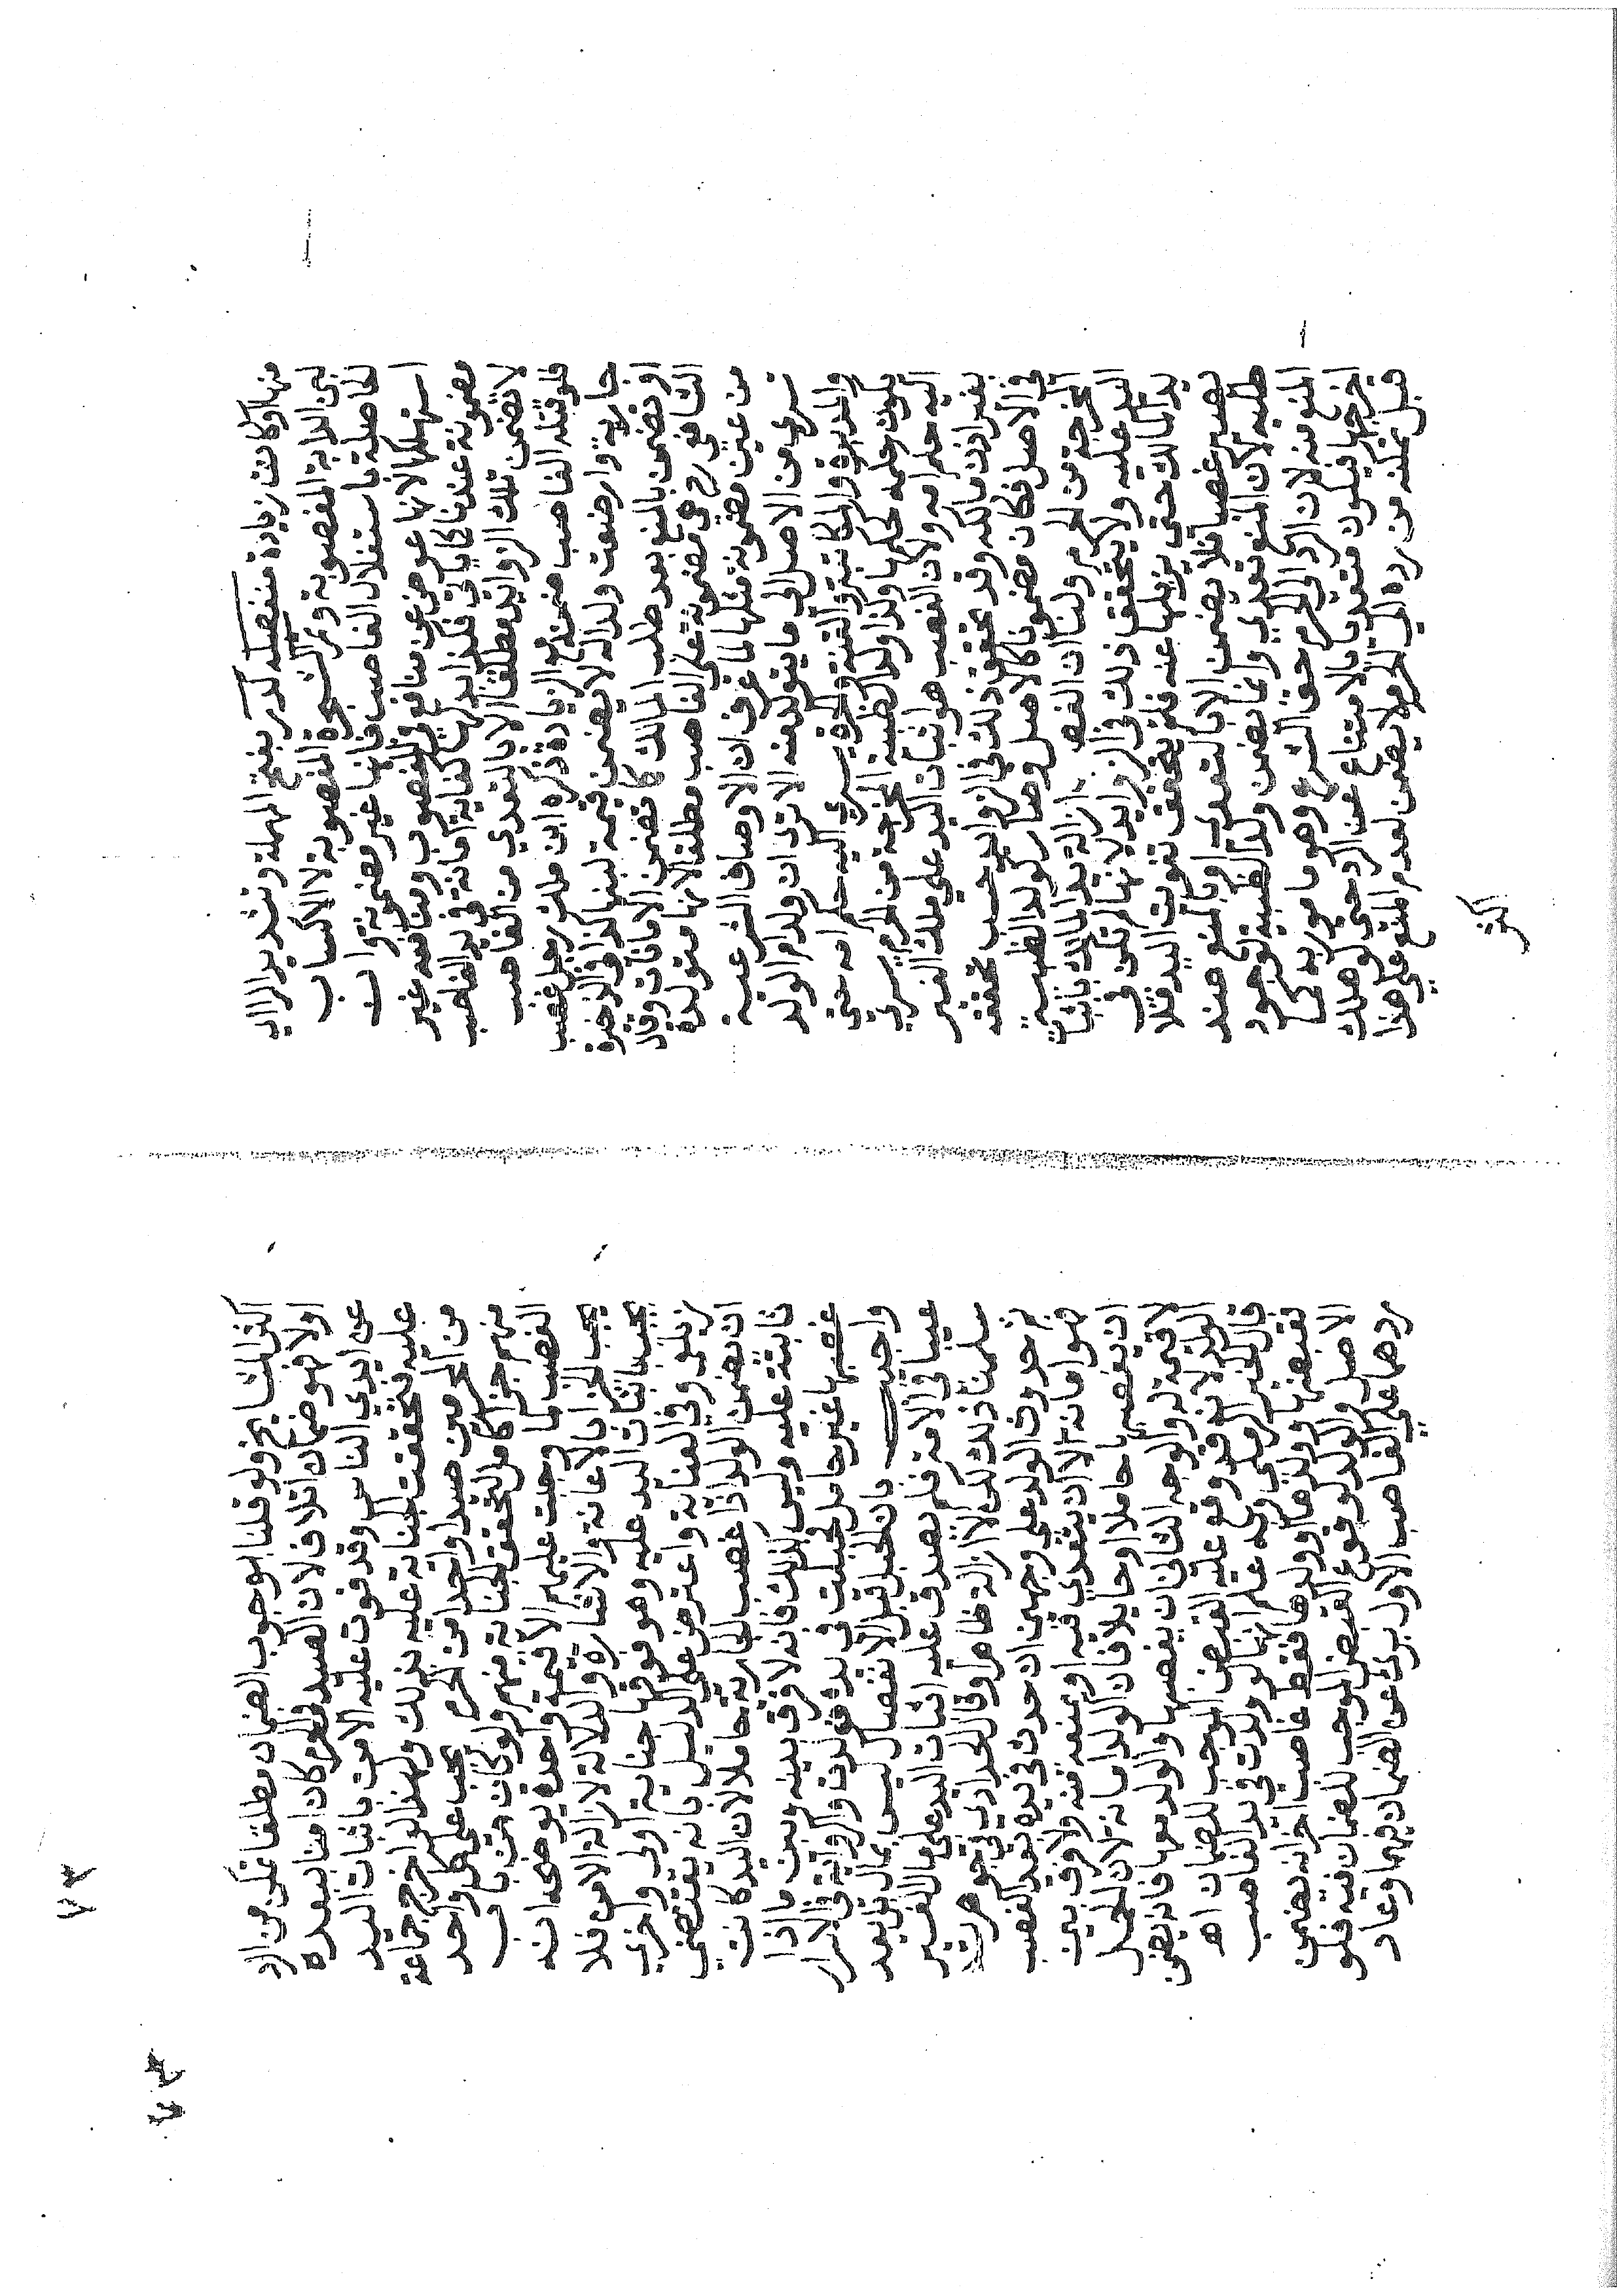 منها وكانت زيادة منفصلة كدر بفتح المهملة وتشديد الراي
لبن الدابة المغصوبة وثمر الشجرة المغصوبة لا الاكساب
الحاصلة باستغلال الغاصب فانها غير مضمونة وان
استهلكها لانها عوض عن منافع المغصوب ومنافعه غير
مضمونة عندنا كما ياتي فكذا بدلها امانة في يد الغاصب
لا تضمن تلك الزوايد مطلقا الا بالتعدي من الغاصب
فلو قتله الغاصب ضمنه مع الزيادة ذكره ابن ملك رجل غصب
جارية وارضعت ولدا له لا يضمن قيمة لبنها كذا في الذخيرة
او تضمن بالمنع بعد طلب المالك كما تضمن الامانات وقال
الشافعي رح هي مضمونة على الغاصب مطلقا لانها متولدة
من عين مضمونة مثلها لما عرف ان الاوصاف الشرعية
تسري من الاصل الى ما يتولد منه الا ترى ان ولد ام الولد
والمدبرة والمكاتبة والقنة والحرة يسري اليه حكم امه حتى
يكون حكمه حكمها وكذا ولد الظبية المخرجة من الحرم يسري
اليه حكم امه ولان الغصب هو اثبات اليد على ملك الغير
بغير اذن مالكه وقد تحقق ذلك في الزوايد حسب تحققه
في الاصل فكان مضمونا كالاصل وصار كولد الظبية
المخرجة من الحرم ولنا ان الغصب ازالة يد المالك باثبات
اليد عليه ولا يتحقق ذلك في الزوايد لانها لم تكن في
يد المالك حتى يزيلها عنه فلم يتحقق تفويت اليد فلا
يصير غصبا فلا يضمن الا بالتعدي او بالمنع عند
طلبه لان المنع تعدي وانما يضمن ولد الظبية لوجود
المنع منه لان الرد الى الحرم حق الشرع وهو مامور به كما
اخرجها فيكون متعديا بالامتناع عن الرد حتى لو هلك
قبل تمكنه من رده الى الحرم لا يضمن لعدم المنع على هذا
اكثر
٧٣
٧٣
اكثر المشايخ ولو قلنا بوجوب الضمان مطلقا تمكن من الرد
اولا فهو ضمان اتلاف لان الصيد في الحرم كان امنا ببعده
عن ايدي الناس وقد فوت عليه الامن باثبات اليد
عليه فتحققت الجناية عليه بذلك ولهذا لو اخرج جماعة
من المحرمين صيدا واحدا من الحرم يجب على كل واحد
منهم جزا كامل لتحقق الجناية منهم ولو كان من باب
الغصب لما وجبت عليهم الا قيمة واحدة يوضحه انه
يجب الجزا بالاعانة والاشارة والدلالة لازالة الامن فلا
يجب باثبات اليد عليه وهو فوقها جناية اولى واحرى
زيلعي وفي العناية واعترض على الدليل بانه يقتضي
ان يضمن الولد اذا غصب الجارية حاملا لان اليد كانت
ثابتة عليه وليس كذلك فانه لا فرق بينه وبين ما اذا
غصبها غير حامل فحبلت في يده فولدت والرواية في الاسرار
واجيب بان الحمل قبل الانفصال ليس بمال بل يعد
عيبا في الامة فلم يصدق عليه اثبات اليد على مال الغير
سلمنا ذلك لكن لا ازالة ظاهرا وقال الحدادي في الجوهرة
ثم حدوث الولد على وجهين ان حدث في يده بعد الغصب
فهو امانة الا ان يتعدى فيه او يمنعه منه ولا فرق بين
ان يغصبها حاملا او حايلا فان الولد امانة لان الحمل
لا قيمة له والوجه الثاني ان يغصبها والولد معها فانه يضمن
الولد لانه قد وقع عليه القبض الموجب للضمان اه
قال الخير الرملي وبه علم انها لو ولدت في يد الغاصب
فغصبها وولدها او ولدها فقط غاصب اخر انه يضمن
الاصل والولد لوقوع القبض الموجب للضمان فيه فلو
ردها على الغاصب الاول برئ عن الضمان فيهما وعاد